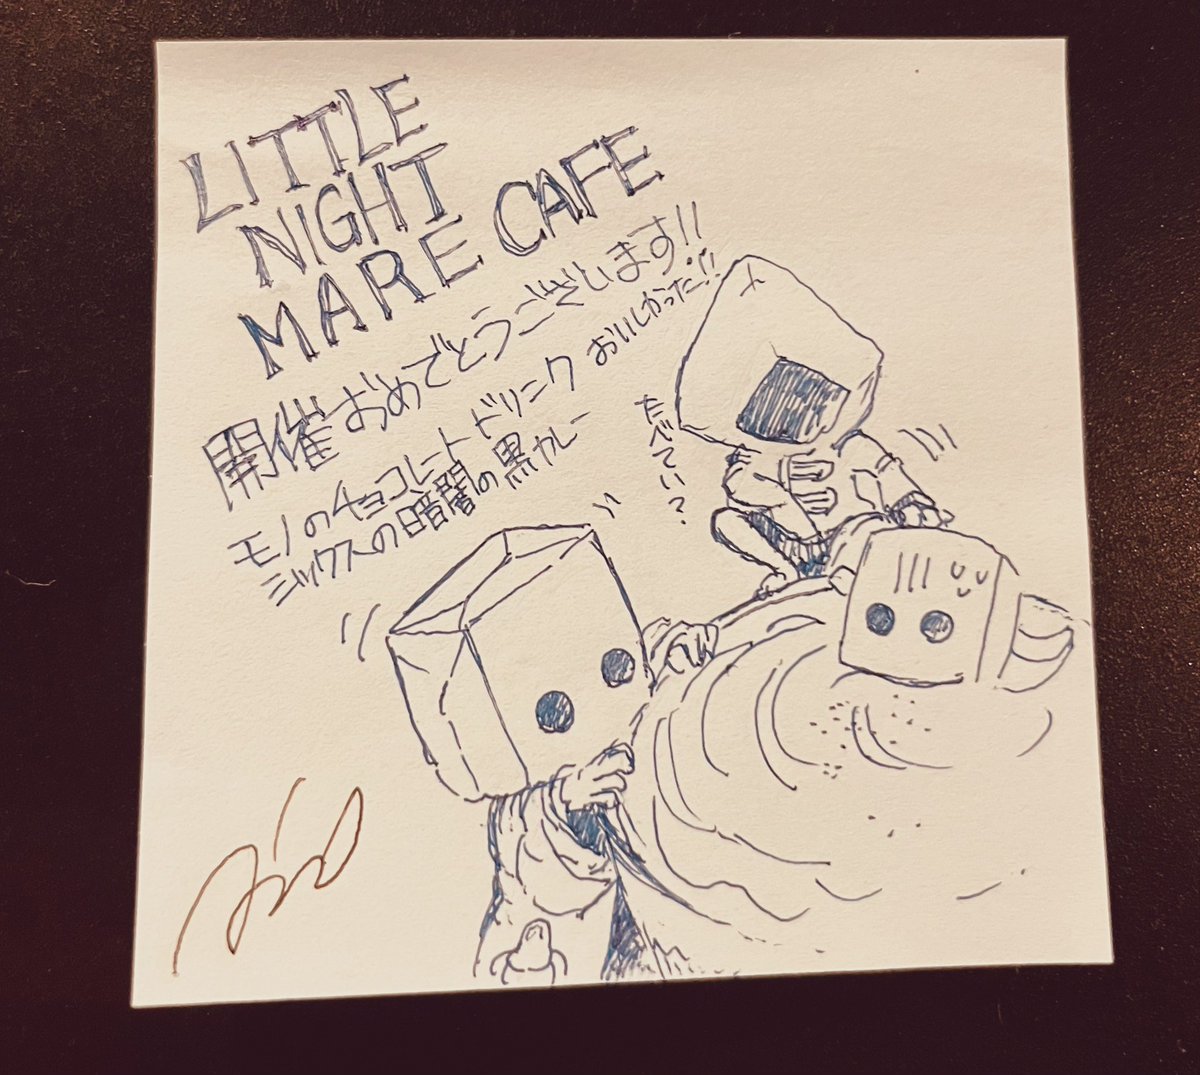 LITTLE
NIGHT
MARE CAFE
開催おめでとうございます!!
モノのチョコレートドリンク おいしかった!!
シックスの暗闇の黒カレー
たべてい?